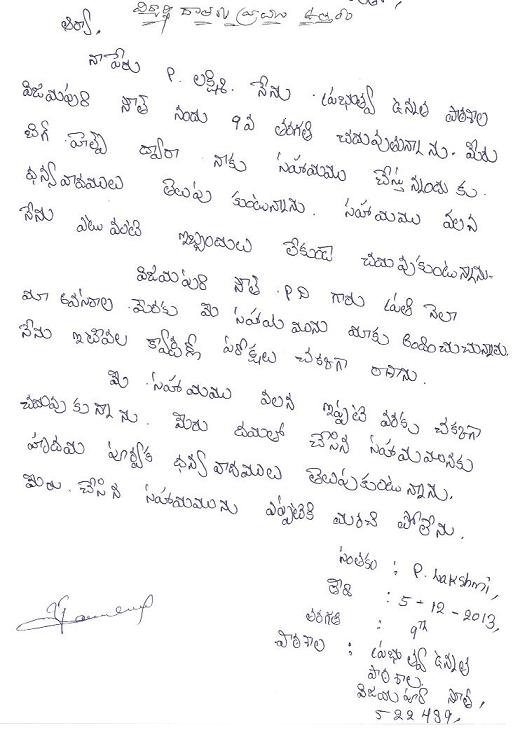 విద్యార్థి దాతకు వ్రాయు ఉత్తరం
ఆర్యా,
నా పేరు P. లక్ష్మి. నేను ప్రభుత్వ ఉన్నత పాఠశాల
విజయపురి సౌత్ నందు 9వ తరగతి చదువుతున్నాను. మీరు
బిగ్ హెల్ప్ ద్వారా నాకు సహాయము చేస్తున్నందుకు
ధన్యవాదములు తెలుపు కుంటున్నాను. సహాయము వలన
నేను ఎటువంటి ఇబ్బందులు లేకుండా చదువుకుంటున్నాను.
విజయపురి సౌత్ P.D గారు ప్రతి నెలా
మా అవసరాల మేరకు మీ సహాయమును మాకు అందించుచున్నారు.
నేను ఇటీవల క్వార్టర్లీ పరీక్షలు చక్కగా రాశాను.
మీ సహాయము వలన ఇప్పటి వరకు చక్కగా
చదువుకున్నాను. మీరు దయతో చేసిన సహాయమునకు
హృదయ పూర్వక ధన్యవాదములు తెలుపుకుంటున్నాను.
మీరు చేసిన సహాయమును ఎప్పటికి మరచి పోలేను.
సంతకం : P. Lakshmi,
తేది : 5-12-2013,
తరగతి : 9th
పాఠశాల : ప్రభుత్వ ఉన్నత
పాఠశాల,
విజయపురి సౌత్,
522439,